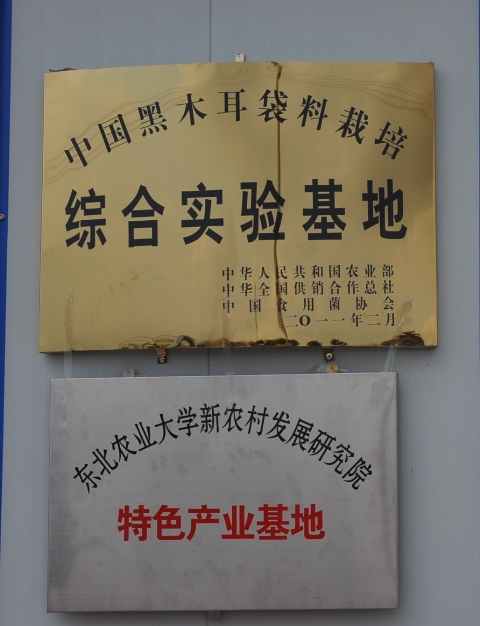 中国黑木耳袋料栽培
综合实验基地
中华人民共和国农业部
中华全国供销合作总社
中国食用菌协会
二〇一一年二月
东北农业大学新农村发展研究院
特色产业基地